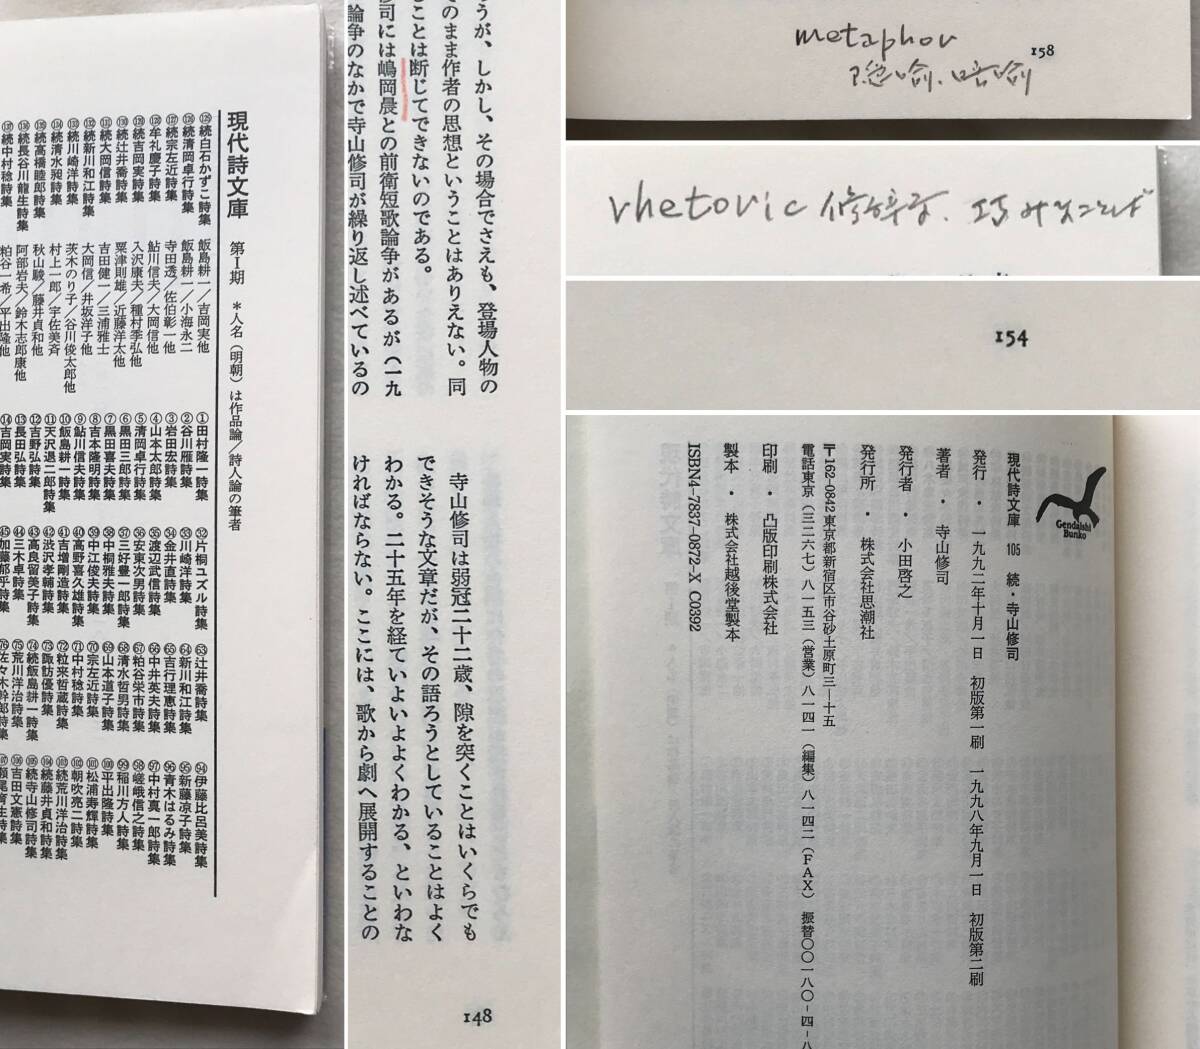 現代詩文庫 第Ⅰ期 *人名(明朝)は作品論/詩人論の筆者
⑫⑤続白石かずこ詩集 飯島耕一/吉岡実他
⑫⑥続清岡卓行詩集 飯島耕一/小海永二
⑫⑦続宗左近詩集 寺田透/佐伯彰一他
⑫⑧牟礼慶子詩集 鮎川信夫/大岡信他
⑫⑨続吉岡実詩集 入沢康夫/種村季弘他
⑬⓪続辻井喬詩集 粟津則雄/近藤洋太他
⑬①続大岡信詩集 吉田健一/三浦雅士
⑬②続新川和江詩集 大岡信/井坂洋子他
⑬③続川崎洋詩集 茨木のり子/谷川俊太郎他
⑬④続清水昶詩集 村上一郎/宇佐美斉
⑬⑤続高橋睦郎詩集 秋山駿/藤井貞和他
⑬⑥続長谷川龍生詩集 阿部岩夫/鈴木志郎康他
⑬⑦続中村稔詩集 粕谷一希/平出隆他
①田村隆一詩集
②谷川雁詩集
③岩田宏詩集
④山本太郎詩集
⑤清岡卓行詩集
⑥黒田三郎詩集
⑦黒田喜夫詩集
⑧吉本隆明詩集
⑨鮎川信夫詩集
⑩飯島耕一詩集
⑪天沢退二郎詩集
⑫吉野弘詩集
⑬長田弘詩集
⑭吉岡実詩集
㉜片桐ユズル詩集
㉝川崎洋詩集
㉞金井直詩集
㉟渡辺武信詩集
㊱安東次男詩集
㊲三好豊一郎詩集
㊳中桐雅夫詩集
㊴中江俊夫詩集
㊵高野喜久雄詩集
㊶吉増剛造詩集
㊷渋沢孝輔詩集
㊸高良留美子詩集
㊹三木卓詩集
㊺加藤郁乎詩集
63辻井喬詩集
64新川和江詩集
65吉行理恵詩集
66中井英夫詩集
67粕谷栄市詩集
68清水哲男詩集
69山本道子詩集
70宗左近詩集
71中村稔詩集
72粒来哲蔵詩集
73諏訪優詩集
74続飯島耕一詩集
75荒川洋治詩集
76佐々木幹郎詩集
94伊藤比呂美詩集
95新藤凉子詩集
96青木はるみ詩集
97中村真一郎詩集
98嵯峨信之詩集
99稲川方人詩集
100平出隆詩集
101松浦寿輝詩集
102朝吹亮二詩集
103続荒川洋治詩集
104続藤井貞和詩集
105続寺山修司詩集
106吉田文憲詩集
107瀬尾育生詩集
うが、しかし、その場合でさえも、登場人物の
そのまま作者の思想ということはありえない。同
ことは断じてできないのである。
司には嶋岡晨との前衛短歌論争があるが(一九
論争のなかで寺山修司が繰り返し述べているの
寺山修司は弱冠二十二歳、隙を突くことはいくらでも
できそうな文章だが、その語ろうとしていることはよく
わかる。二十五年を経ていよいよよくわかる、といわな
ければならない。ここには、歌から劇へ展開することの
148
metaphor
158
隠喩、暗喩
rhetoric 修辞学、巧みなことば
154
Gendaishi
Bunko
現代詩文庫 105 続・寺山修司
発行・一九九二年十月一日 初版第一刷 一九九八年九月一日 初版第二刷
著者・寺山修司
発行者・小田啓之
発行所・株式会社思潮社
〒162-0842東京都新宿区市谷砂土原町三―十五
電話東京(三二六七)八一五三(営業)八一四一(編集)八一四二(FAX) 振替〇〇一八〇―四―八
印刷・凸版印刷株式会社
製本・株式会社越後堂製本
ISBN4-7837-0872-X C0392